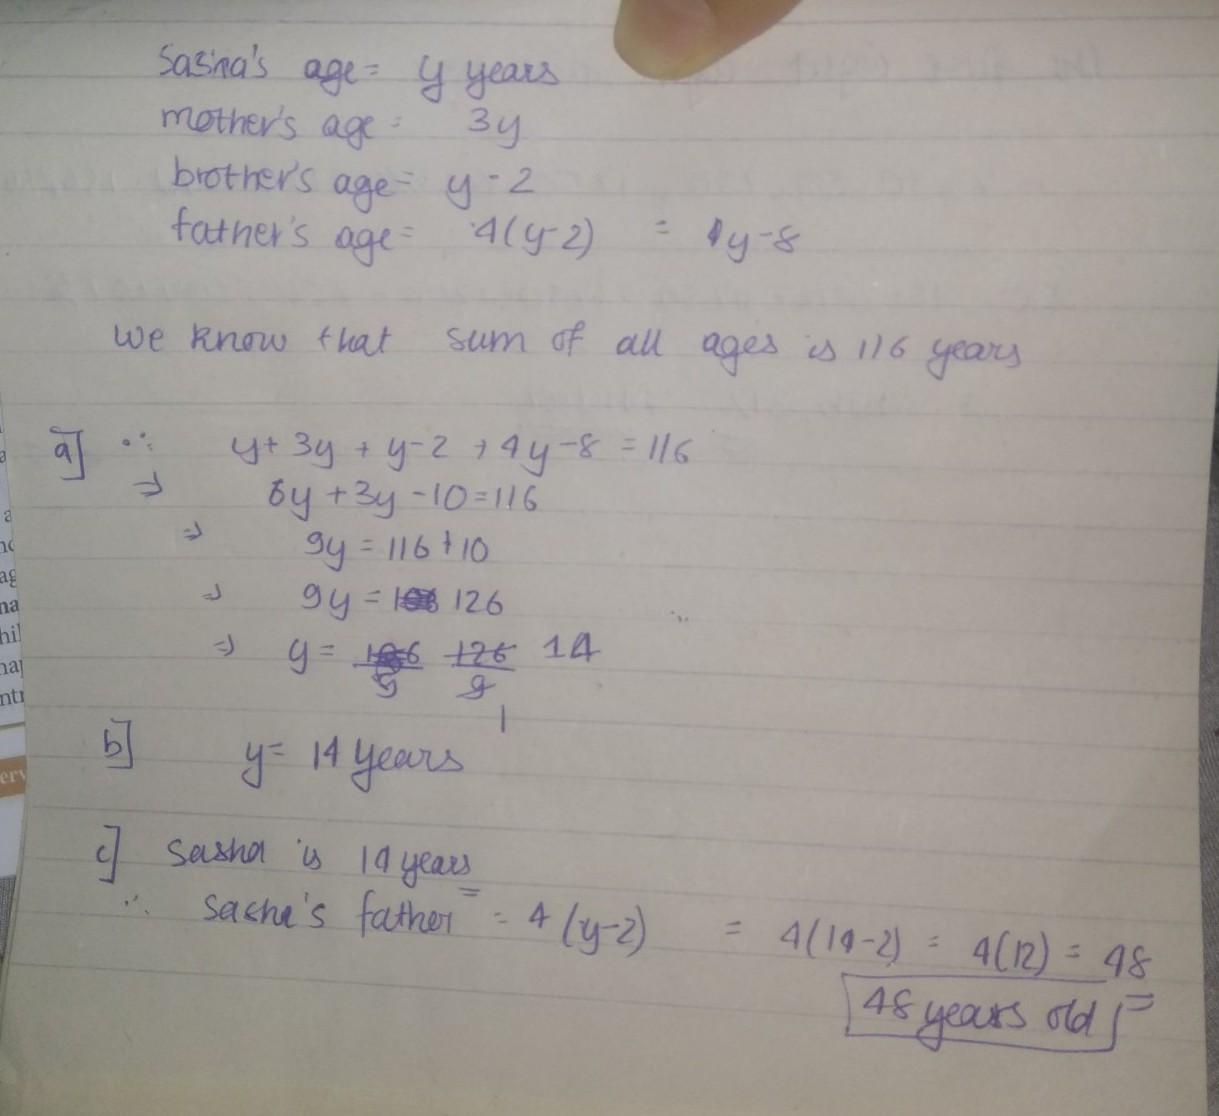 Sasha's age = y years
mother's age = 3y
brother's age = y - 2
father's age = 4(y-2) = 4y-8
we know that sum of all ages is 116 years
a] ∴ y + 3y + y-2 + 4y-8 = 116
⇒ 6y + 3y - 10 = 116
⇒ 9y = 116 + 10
⇒ 9y = 126
⇒ y = 126/9 14
1
b] y = 14 years
c] Sasha is 14 years
∴ Sasha's father = 4 (y-2) = 4(14-2) = 4(12) = 48
48 years old